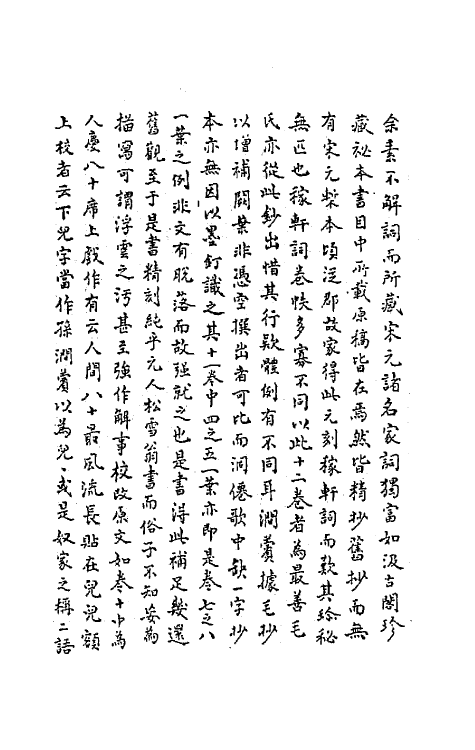 余素不解詞而所藏宋元諸名家詞獨富如汲古閣珍
藏祕本書目中所載原稿皆在焉然皆精抄舊抄而無
有宋元槧本頃從郡故家得此元刻稼軒詞而歎其珍秘
無匹也稼軒詞卷帙多寡不同以此十二卷者為最善毛
氏亦從此鈔出惜其行款體例有不同耳澗薲據毛抄
以增補闕葉非憑空撰出者可比而洞僊歌中缺一字抄
本亦無因以墨釘識之其十一卷中四之五一葉亦即是卷七之八
一葉之例非文有脫落而故強就之也是書得此補足幾還
舊觀至于是書精刻純乎元人松雪翁書而俗子不知妄為
描寫可謂浮雲之污甚至強作解事校改原文如卷十中為
人慶八十席上戲作有云人間八十最風流長貼在兒兒額
上校者云下兒字當作孫澗薲以為兒、或是奴家之稱二語